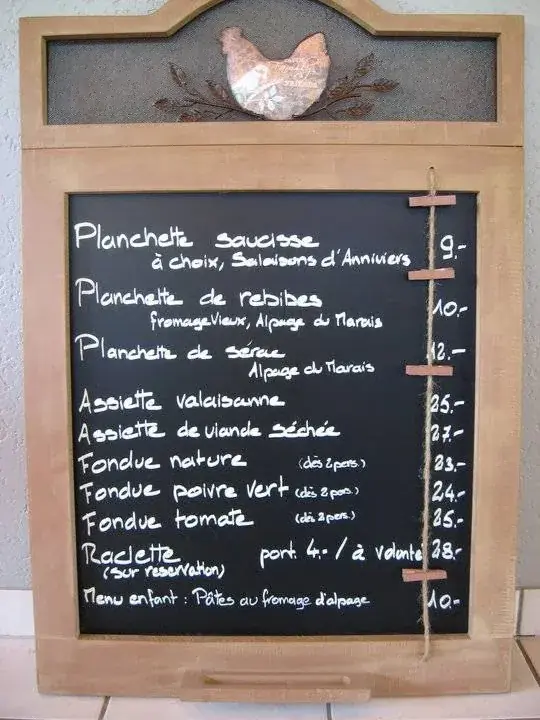 Planchette saucisse 9.-
à choix, Salaisons d'Anniviers
Planchette de rebibes 10.-
fromage vieux, Alpage du Marais
Planchette de sérac 12.-
Alpage du Marais
Assiette valaisanne 25.-
Assiette de viande séchée 27.-
Fondue nature (dès 2 pers.) 23.-
Fondue poivre vert (dès 2 pers.) 24.-
Fondue tomate (dès 2 pers.) 25.-
Raclette port. 4.- / à volonté 28.-
(sur reservation)
Menu enfant : Pâtes au fromage d'alpage 10.-